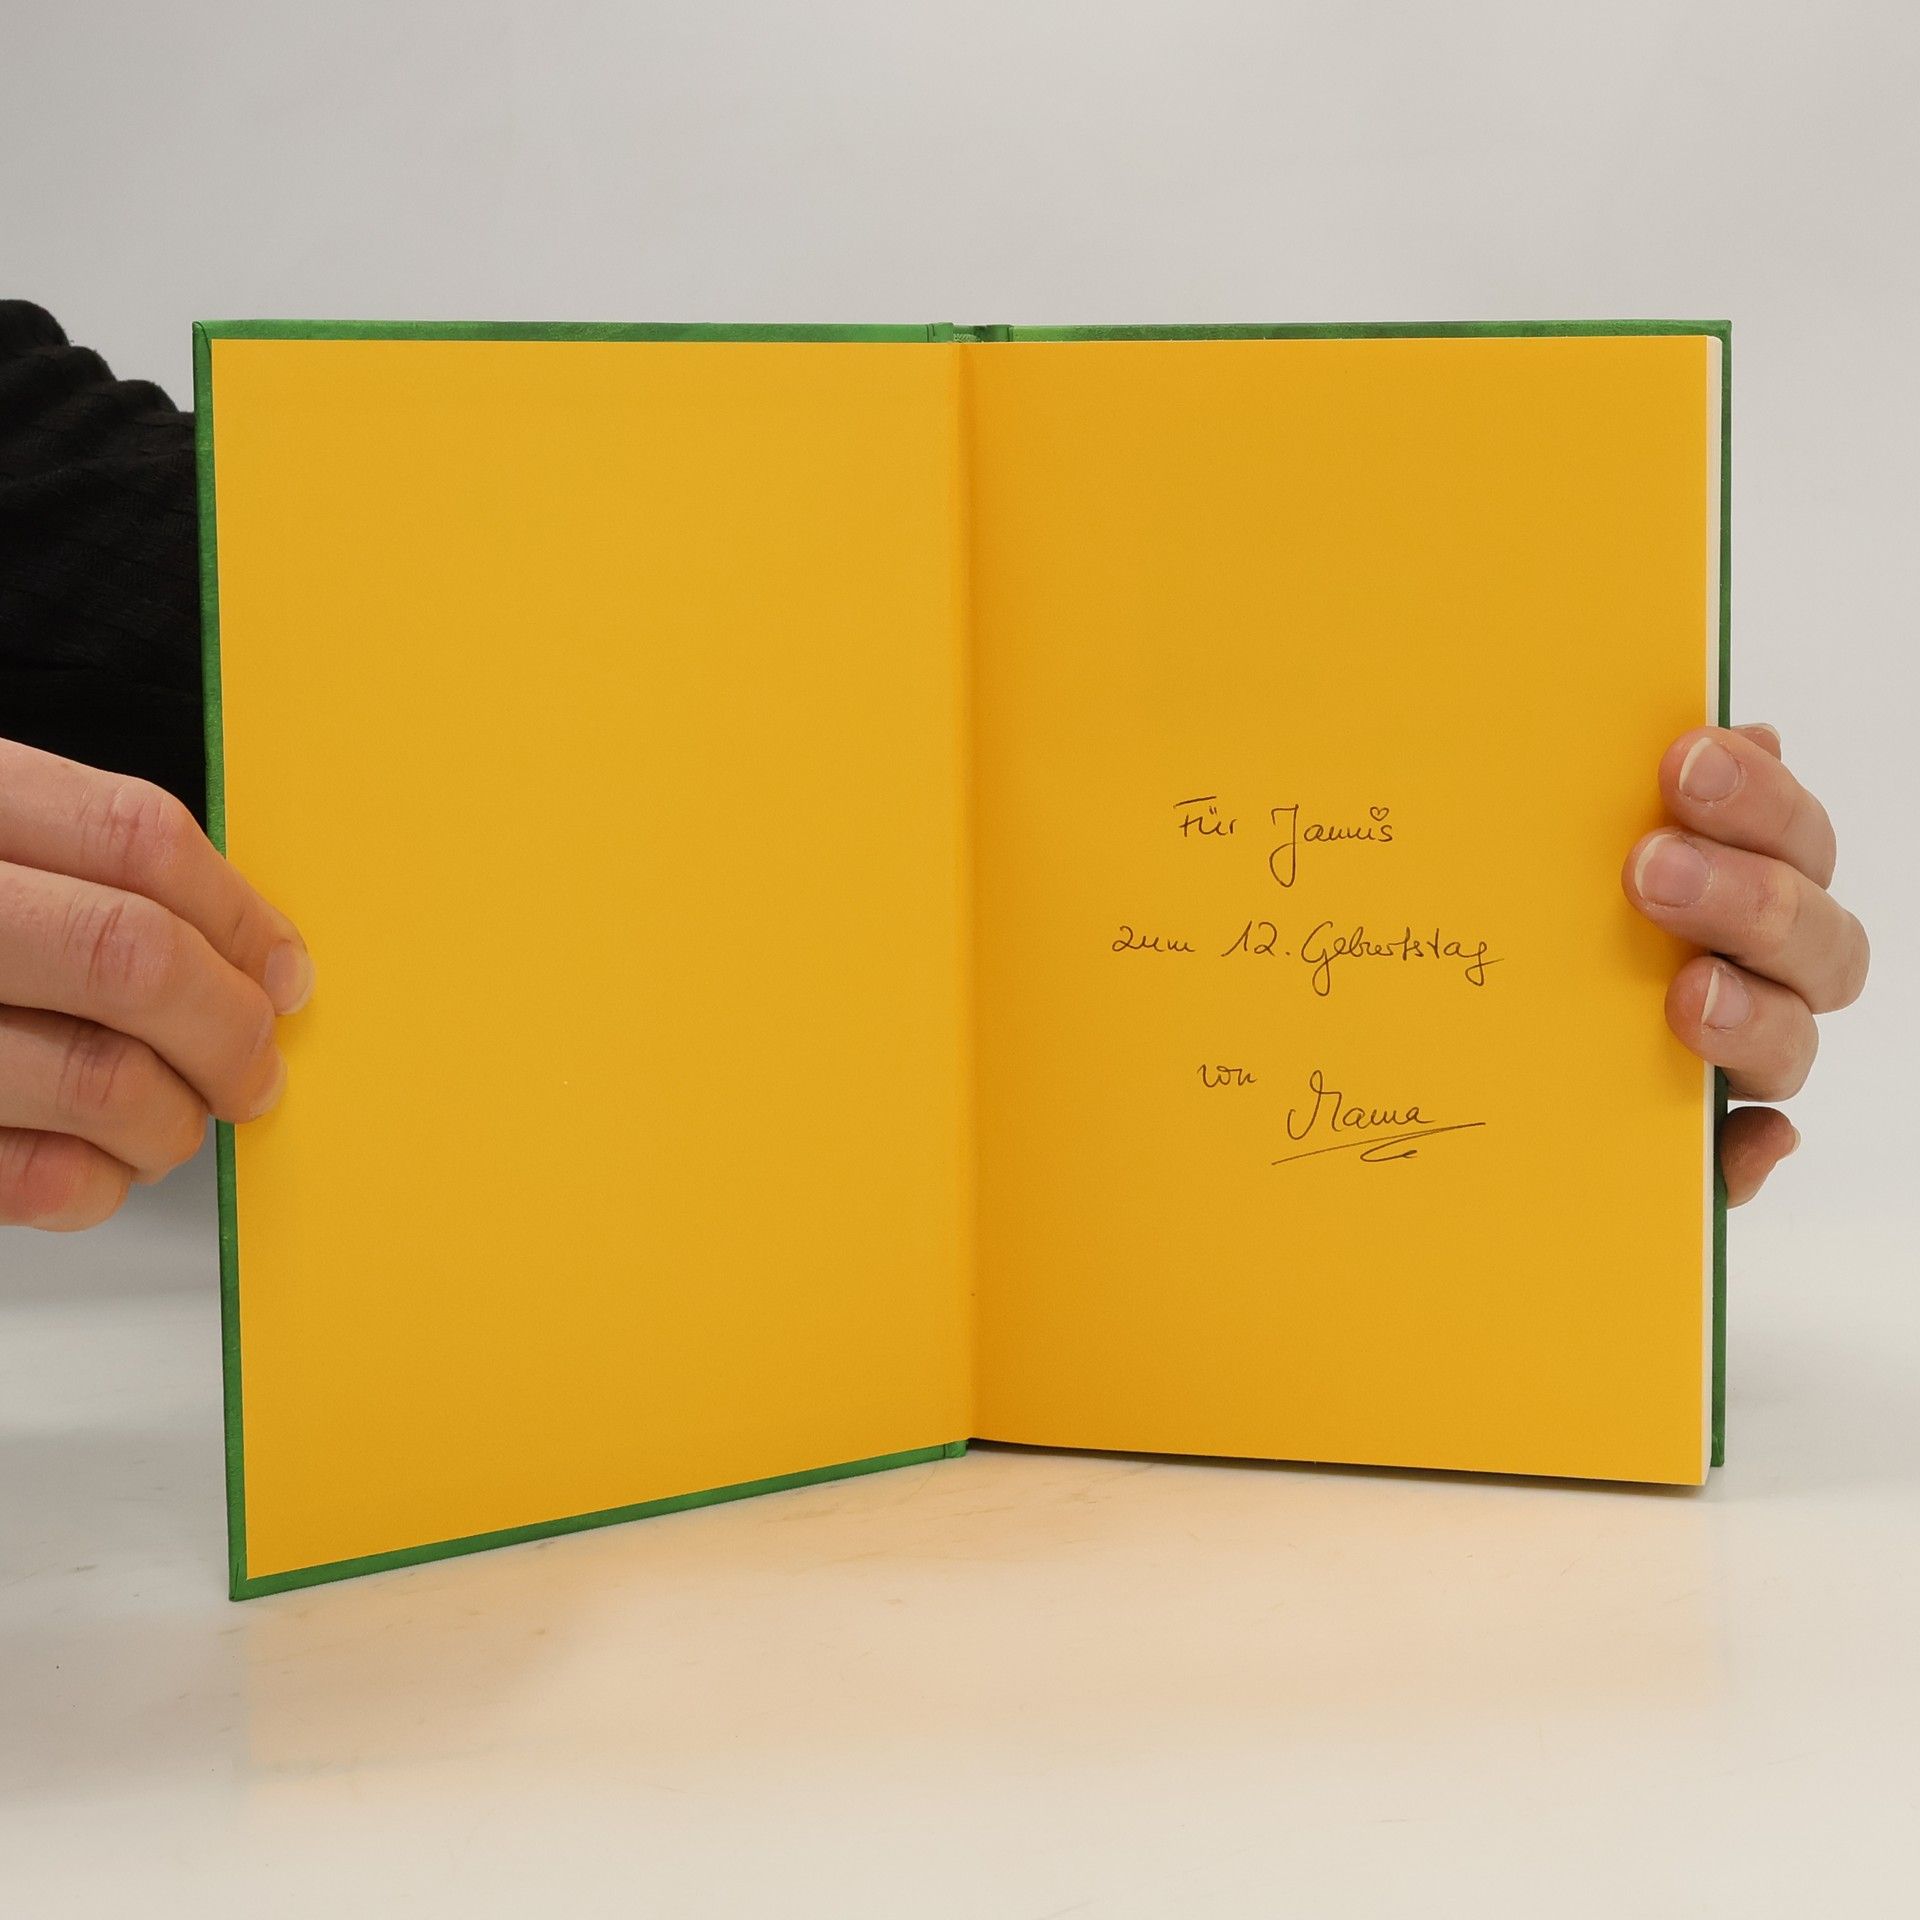 Für Jannis
zum 12. Geburtstag
von Mama